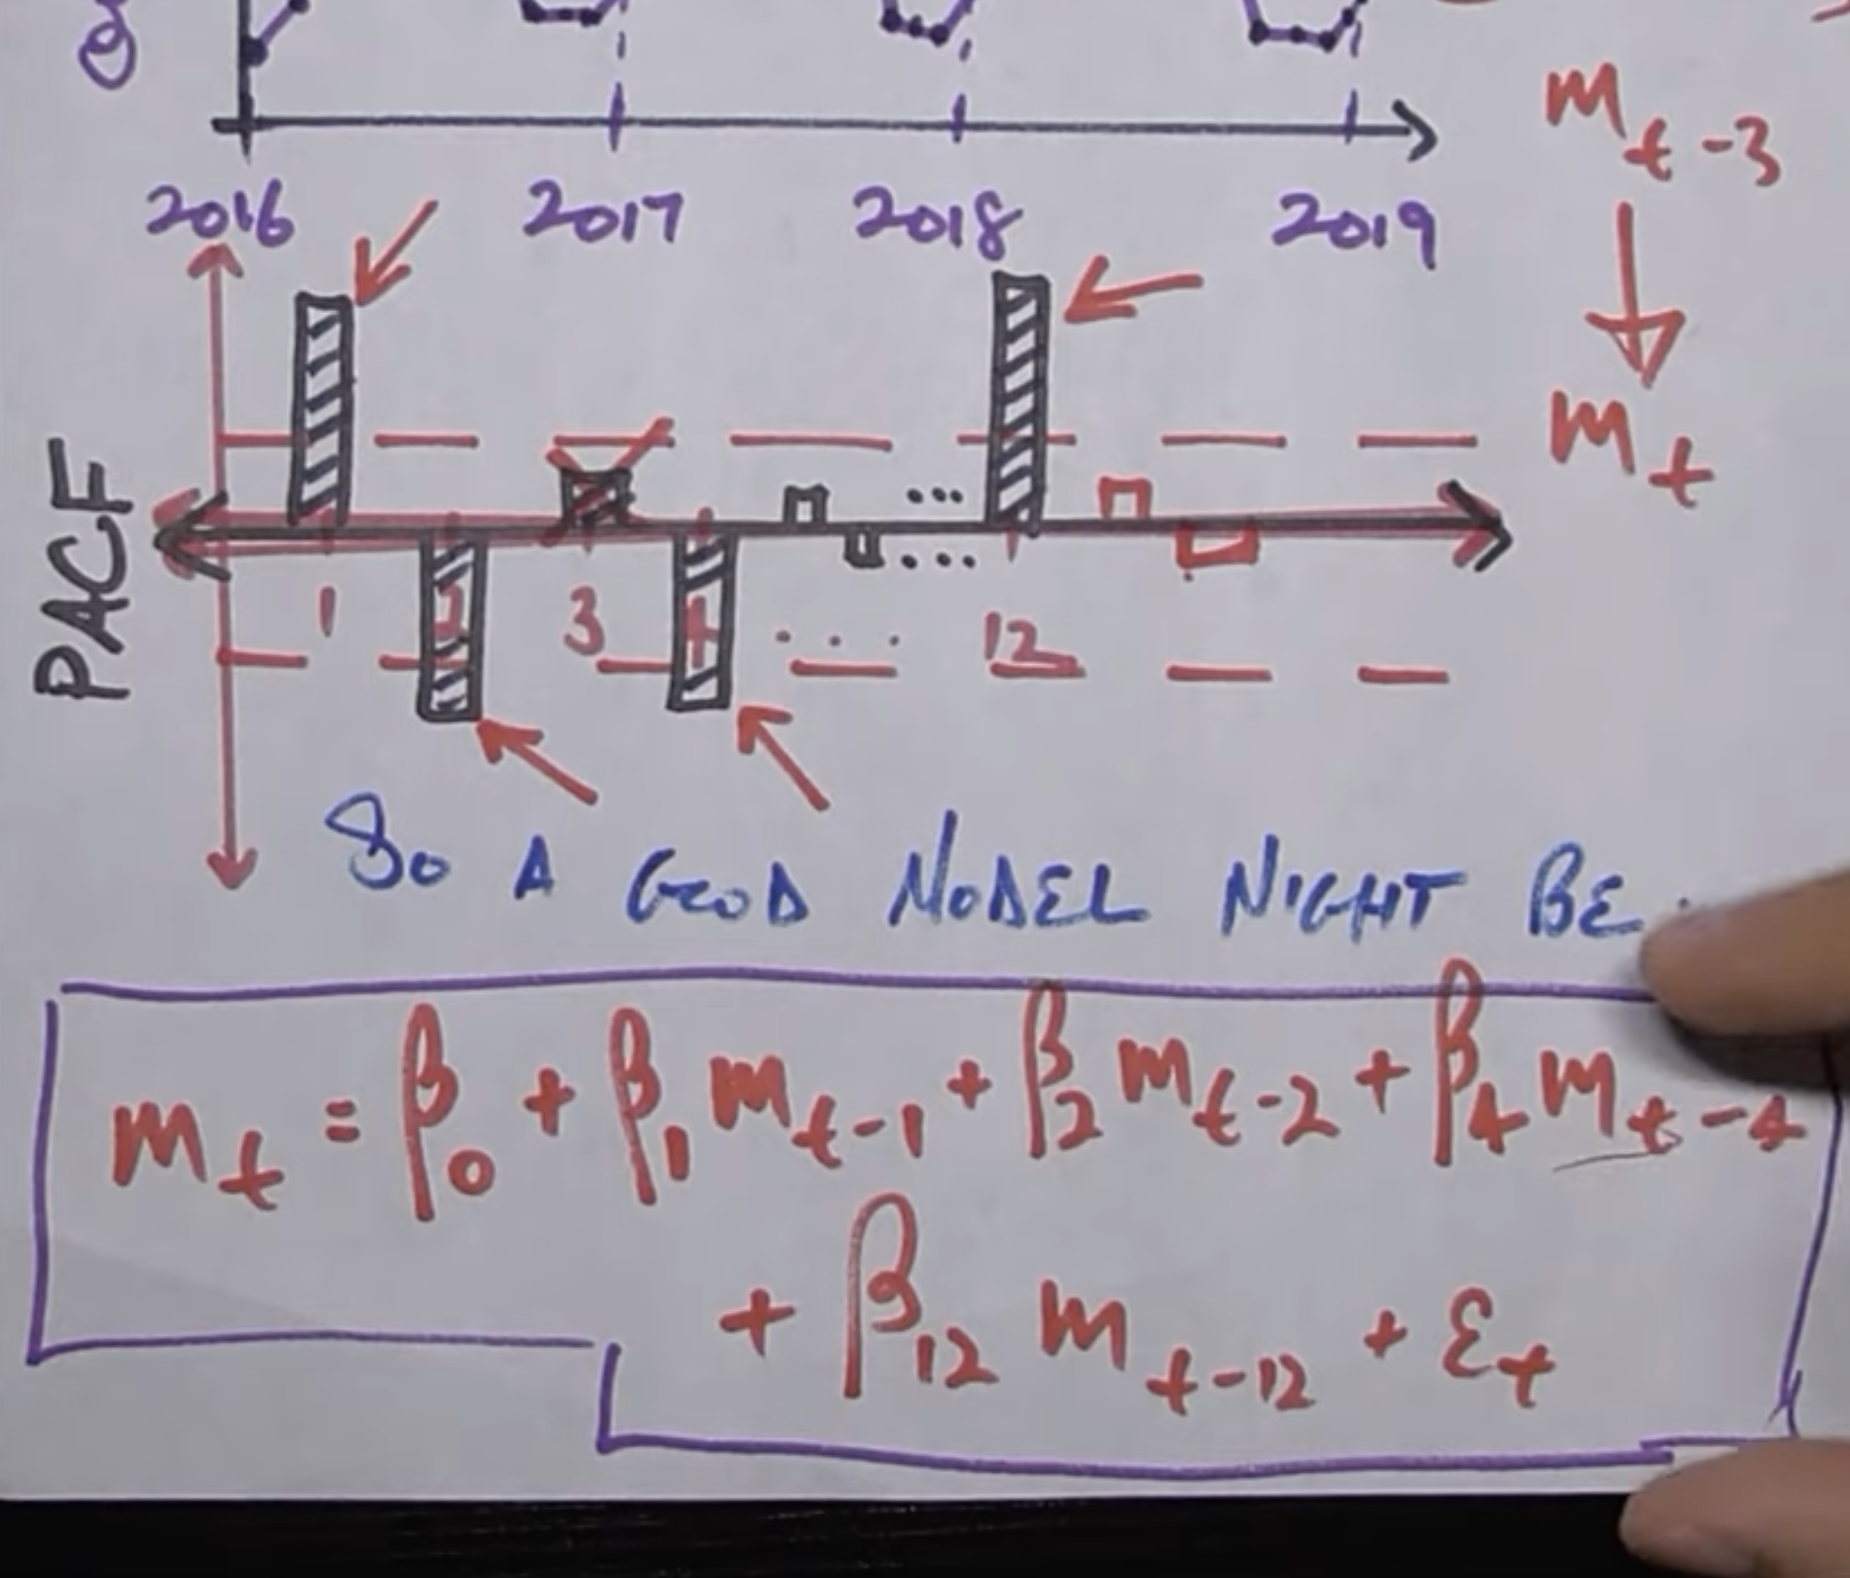 2016 2017 2018 2019
m t-3
m t
PACF
1 2 3 4 ... 12
... ...
So A GOOD MODEL MIGHT BE:
m_t = β_0 + β_1 m_{t-1} + β_2 m_{t-2} + β_4 m_{t-4}
+ β_12 m_{t-12} + ε_t